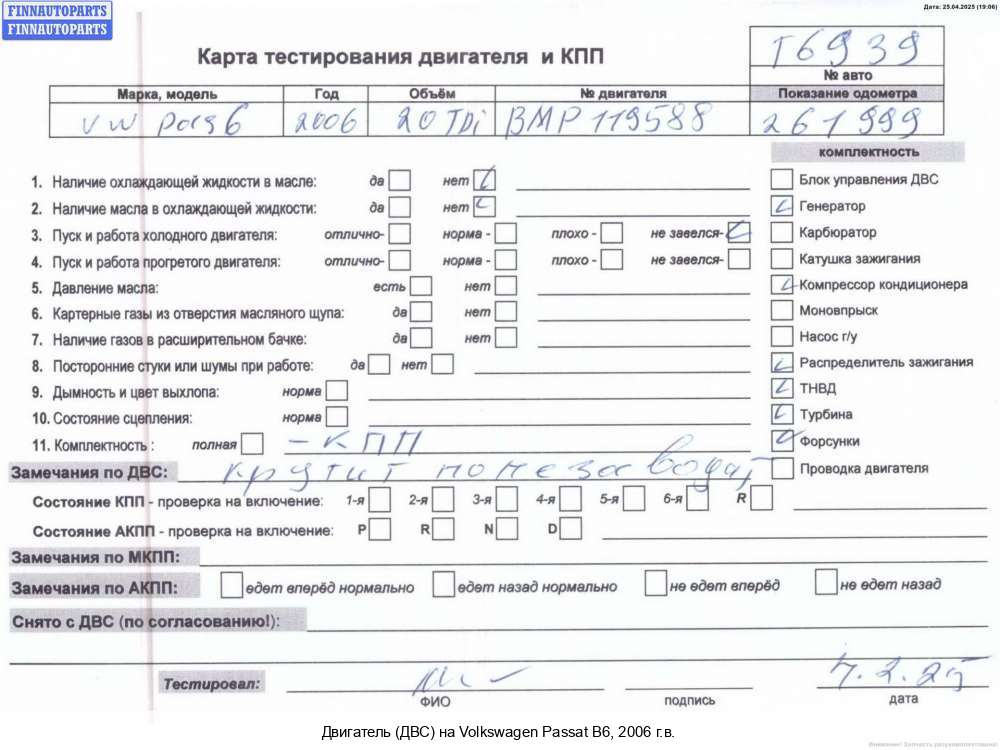 FINNAUTOPARTS
FINNAUTOPARTS
Дата: 25.04.2025 (19:06)
Карта тестирования двигателя и КПП
Т6939
№ авто
Марка, модель Год Объём № двигателя Показание одометра
VW pass 6 2006 20 TDi BMP 119588 261 999
комплектность
1. Наличие охлаждающей жидкости в масле: да нет Блок управления ДВС
2. Наличие масла в охлаждающей жидкости: да нет Генератор
3. Пуск и работа холодного двигателя: отлично- норма - плохо - не завелся- Карбюратор
4. Пуск и работа прогретого двигателя: отлично- норма - плохо - не завелся- Катушка зажигания
5. Давление масла: есть нет Компрессор кондиционера
6. Картерные газы из отверстия масляного щупа: да нет Моновпрыск
7. Наличие газов в расширительном бачке: да нет Насос г/у
8. Посторонние стуки или шумы при работе: да нет Распределитель зажигания
9. Дымность и цвет выхлопа: норма ТНВД
10. Состояние сцепления: норма Турбина
11. Комплектность : полная - КПП Форсунки
Замечания по ДВС: крутит но не заводит Проводка двигателя
Состояние КПП - проверка на включение: 1-я 2-я 3-я 4-я 5-я 6-я R
Состояние АКПП - проверка на включение: P R N D
Замечания по МКПП:
Замечания по АКПП: едет вперёд нормально едет назад нормально не едет вперёд не едет назад
Снято с ДВС (по согласованию!):
Тестировал: 7.2.25
ФИО подпись дата
Двигатель (ДВС) на Volkswagen Passat B6, 2006 г.в.
Внимание! Запчасть разукомплектована!